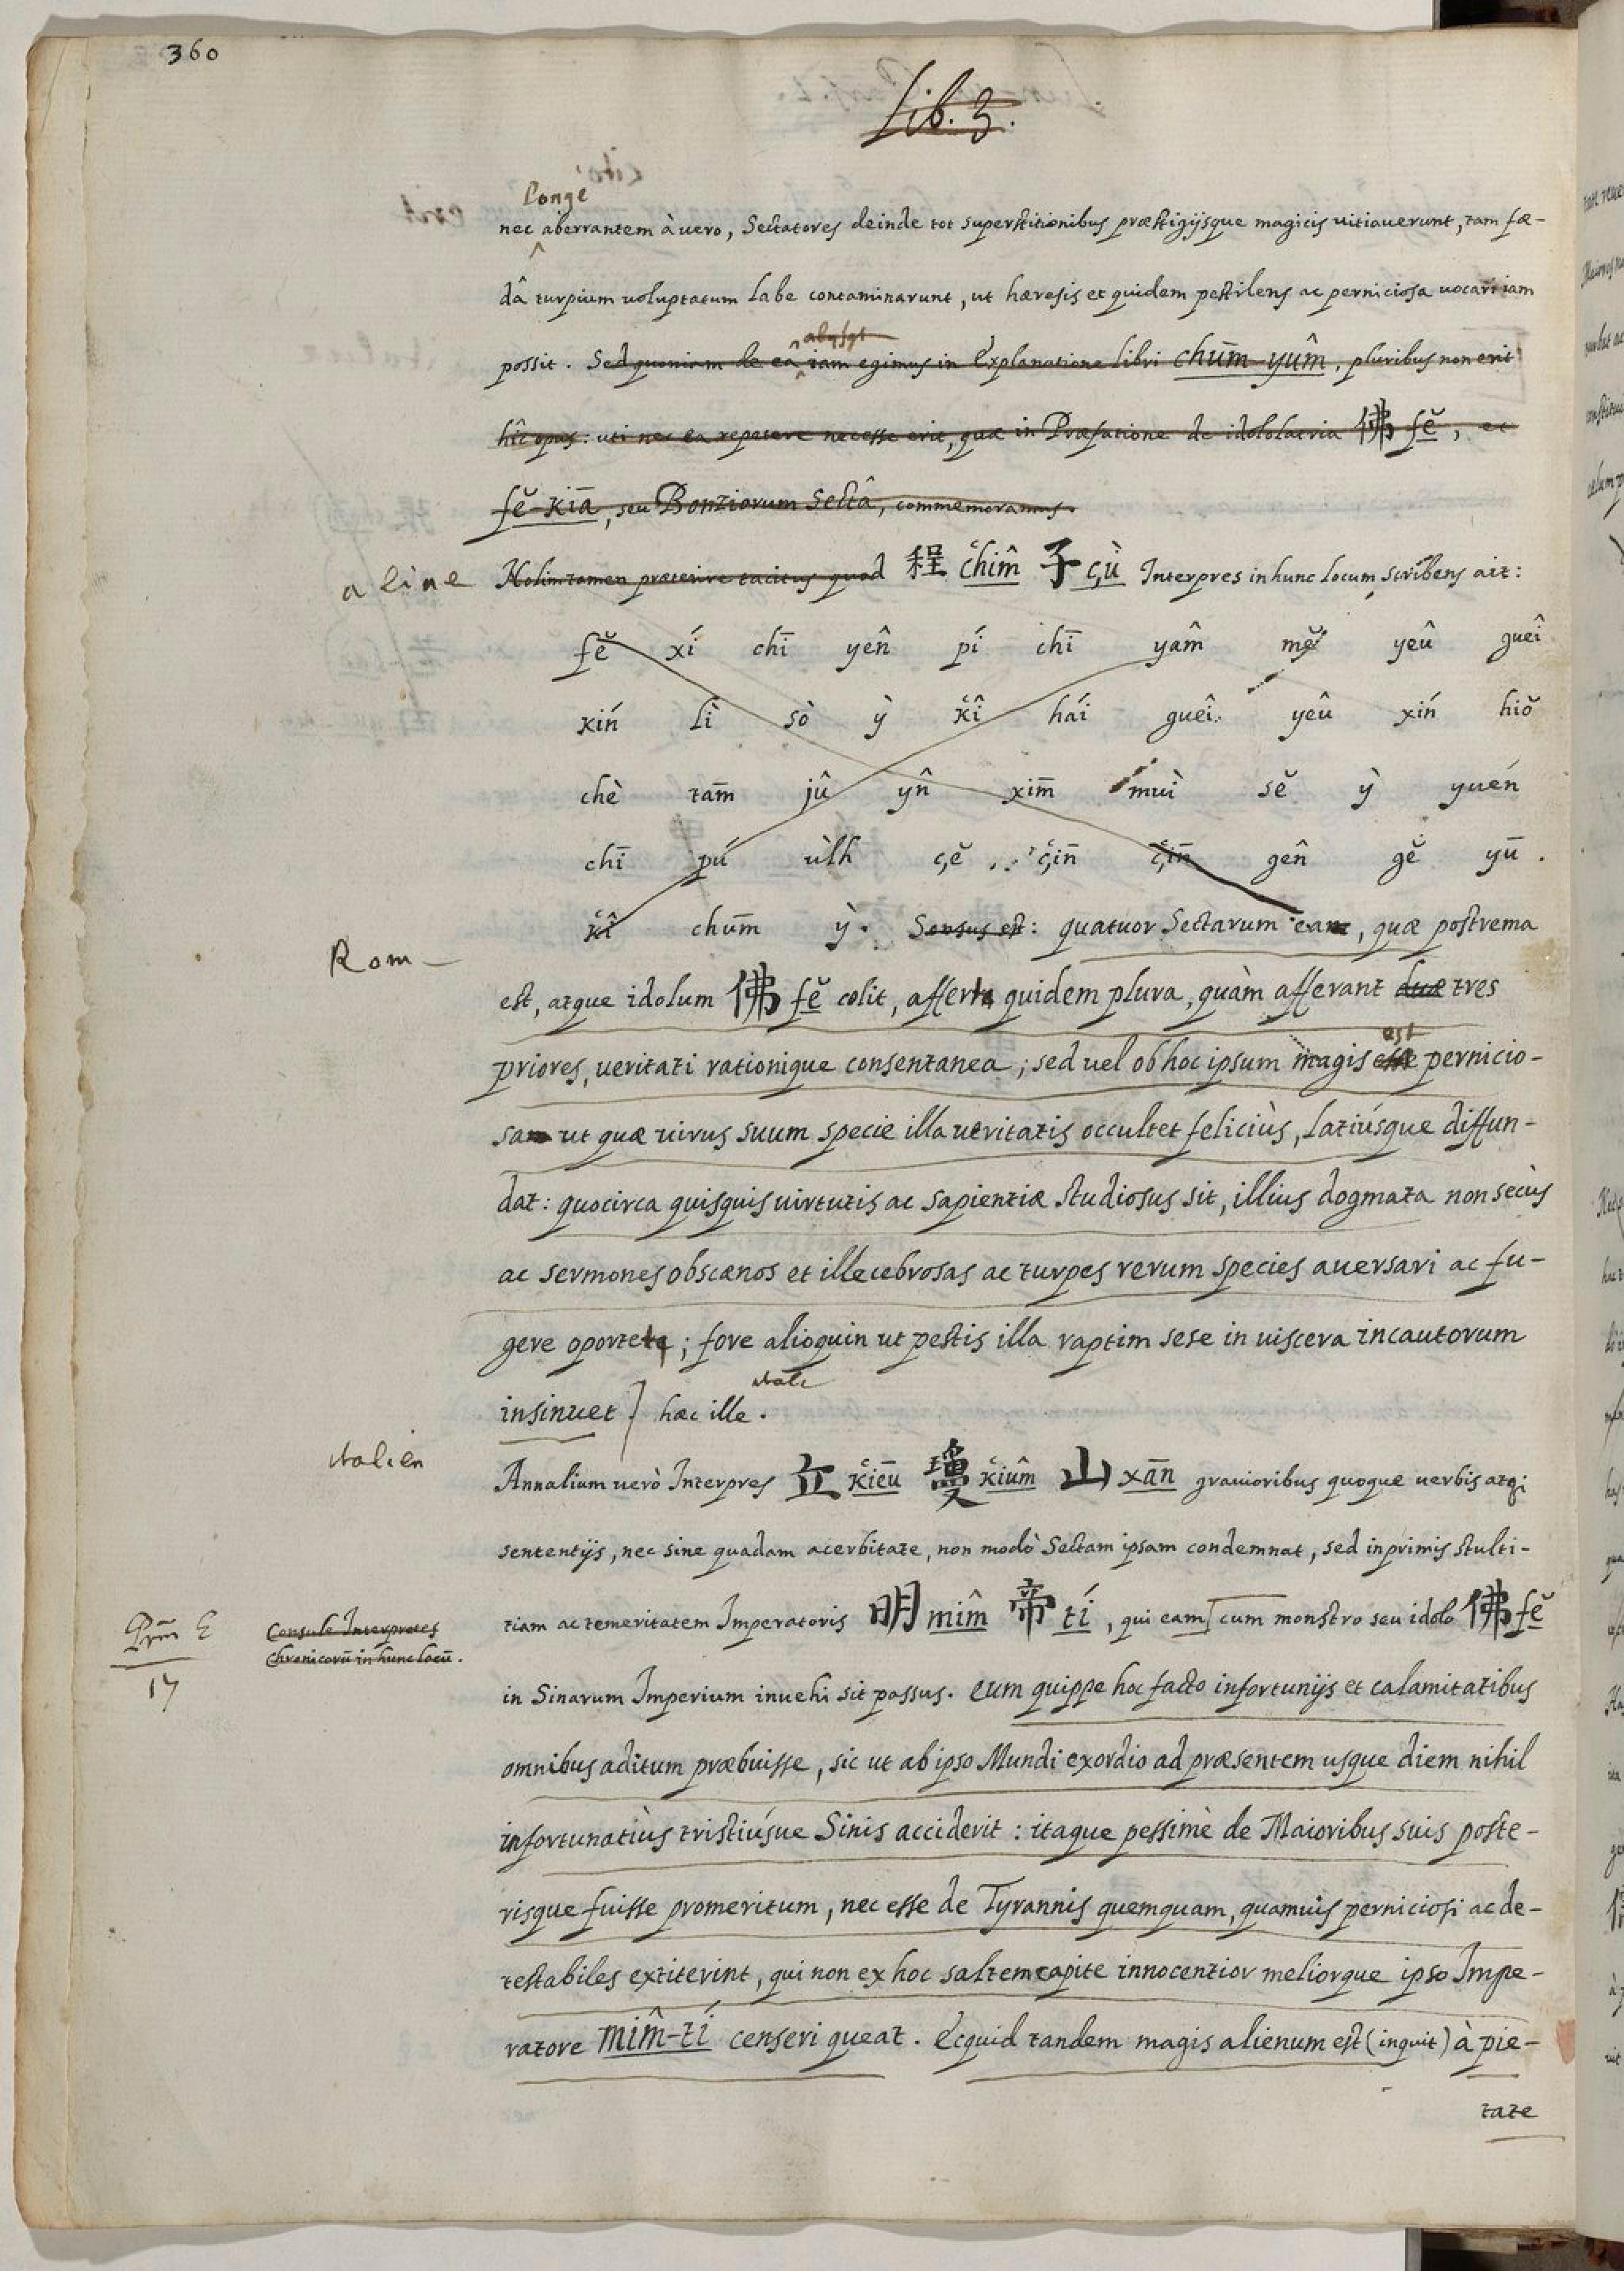 360
Lib. 3.
longe
nec aberrantem à uero, Sectatores deinde tot superstitionibus præstigijsque magicis uitiauerunt, tam fæ-
dâ turpium uoluptatum labe contaminarunt, ut hæresis et quidem pestilens ac perniciosa uocari iam
possit. Sed quoniam de ea iam egimus in Explanatione libri chūm-yûm, pluribus non erit
hîc opus: uti nec ea repetere necesse erit, quæ in Præfatione de idololatria 佛 fĕ, ac
fĕ-kiā, seu Bonziorum Sectâ, commemoramus.
a line
Nolim tamen præterire tacitus quod 程 c̔hîm 子 çù Interpres in hunc locum scribens ait:
fĕ xí chī yên pí chī yâm mĕ yeû gueî
kiń lì sò ỳ k̔î hái gueî yeû xiń hiŏ
chè tām jû yn̂ xim̄ muì sĕ ỳ yuén
chī pú ùlh çĕ ç̔in̄ ç̔in̄ gên gĕ yū .
k̔î chūm ỳ. Sensus est: quatuor Sectarum eam, quæ postrema
Rom
est, atque idolum 佛 fĕ colit, affert quidem plura, quàm afferant duæ tres
est
priores, ueritati rationique consentanea; sed uel ob hoc ipsum magis esse pernicio-
sam ut quæ uirus suum specie illa ueritatis occultet feliciùs, latiúsque diffun-
dat: quocirca quisquis uirtutis ac sapientiæ studiosus sit, illius dogmata non secùs
ac sermones obscænos et illecebrosas ac turpes rerum species auersari ac fu-
gere oportet; fore alioquin ut pestis illa raptim sese in uiscera incautorum
insinuet] hæc ille.
italien
Annalium uerò Interpres 丘 k̔ieū 瓊 k̔iûm 山 xān grauioribus quoque uerbis atq;
sententijs, nec sine quadam acerbitate, non modò Sectam ipsam condemnat, sed inprimis stulti-
tiam ac temeritatem Imperatoris 明 mîm 帝 tí, qui eam cum monstro seu idolo 佛 fĕ
Consule Interpretes
Chronicorū in hunc locū.
17
in Sinarum Imperium inuehi sit passus. eum quippe hoc facto infortunijs et calamitatibus
omnibus aditum præbuisse, sic ut ab ipso Mundi exordio ad præsentem usque diem nihil
infortunatiùs tristiúsue Sinis acciderit: itaque pessimè de Maioribus suis poste-
risque fuisse promeritum, nec esse de Tyrannis quemquam, quamuis perniciosi ac de-
testabiles extiterint, qui non ex hoc saltem capite innocentior meliorque ipso Impe-
ratore mîm-tí censeri queat. Ecquid tandem magis alienum est (inquit) à pie-
tate